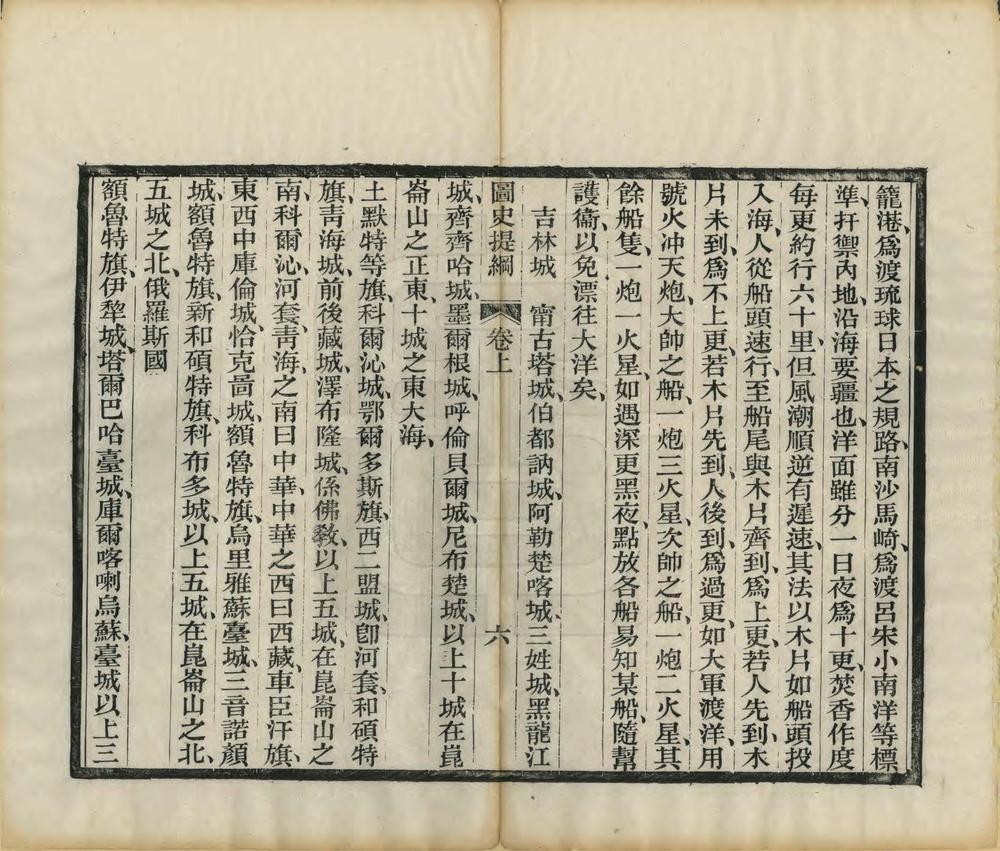 籠港、爲渡琉球日本之規路、南沙馬崎、爲渡呂宋小南洋等標
準、扞禦內地、沿海要疆也、洋面雖分一日夜爲十更、焚香作度
每更約行六十里、但風潮順逆有遲速、其法以木片如船頭投
入海、人從船頭速行、至船尾與木片齊到、爲上更、若人先到、木
片未到、爲不上更、若木片先到、人後到、爲過更、如大軍渡洋、用
號火冲天炮、大帥之船、一炮三火星、次帥之船、一炮二火星、其
餘船隻、一炮一火星、如遇深更黑夜、點放各船易知某船、隨幫
護衞、以免漂往大洋矣、
吉林城 甯古塔城、伯都訥城、阿勒楚喀城、三姓城、黑龍江
圖史提綱 卷上 六
城、齊齊哈城、墨爾根城、呼倫貝爾城、尼布楚城、以上十城在崑
崙山之正東、十城之東大海、
土默特等旗、科爾沁城、鄂爾多斯旗、西二盟城、卽河套、和碩特
旗、靑海城、前後藏城、澤布隆城、係佛敎、以上五城、在崑崙山之
南、科爾沁、河套、靑海、之南曰中華、中華之西曰西藏、車臣汗旗、
東西中庫倫城、恰克啚城、額魯特旗、烏里雅蘇臺城、三音諾顏
城、額魯特旗、新和碩特旗、科布多城、以上五城、在崑崙山之北、
五城之北、俄羅斯國
額魯特旗、伊犂城、塔爾巴哈臺城、庫爾喀喇烏蘇、臺城以上三